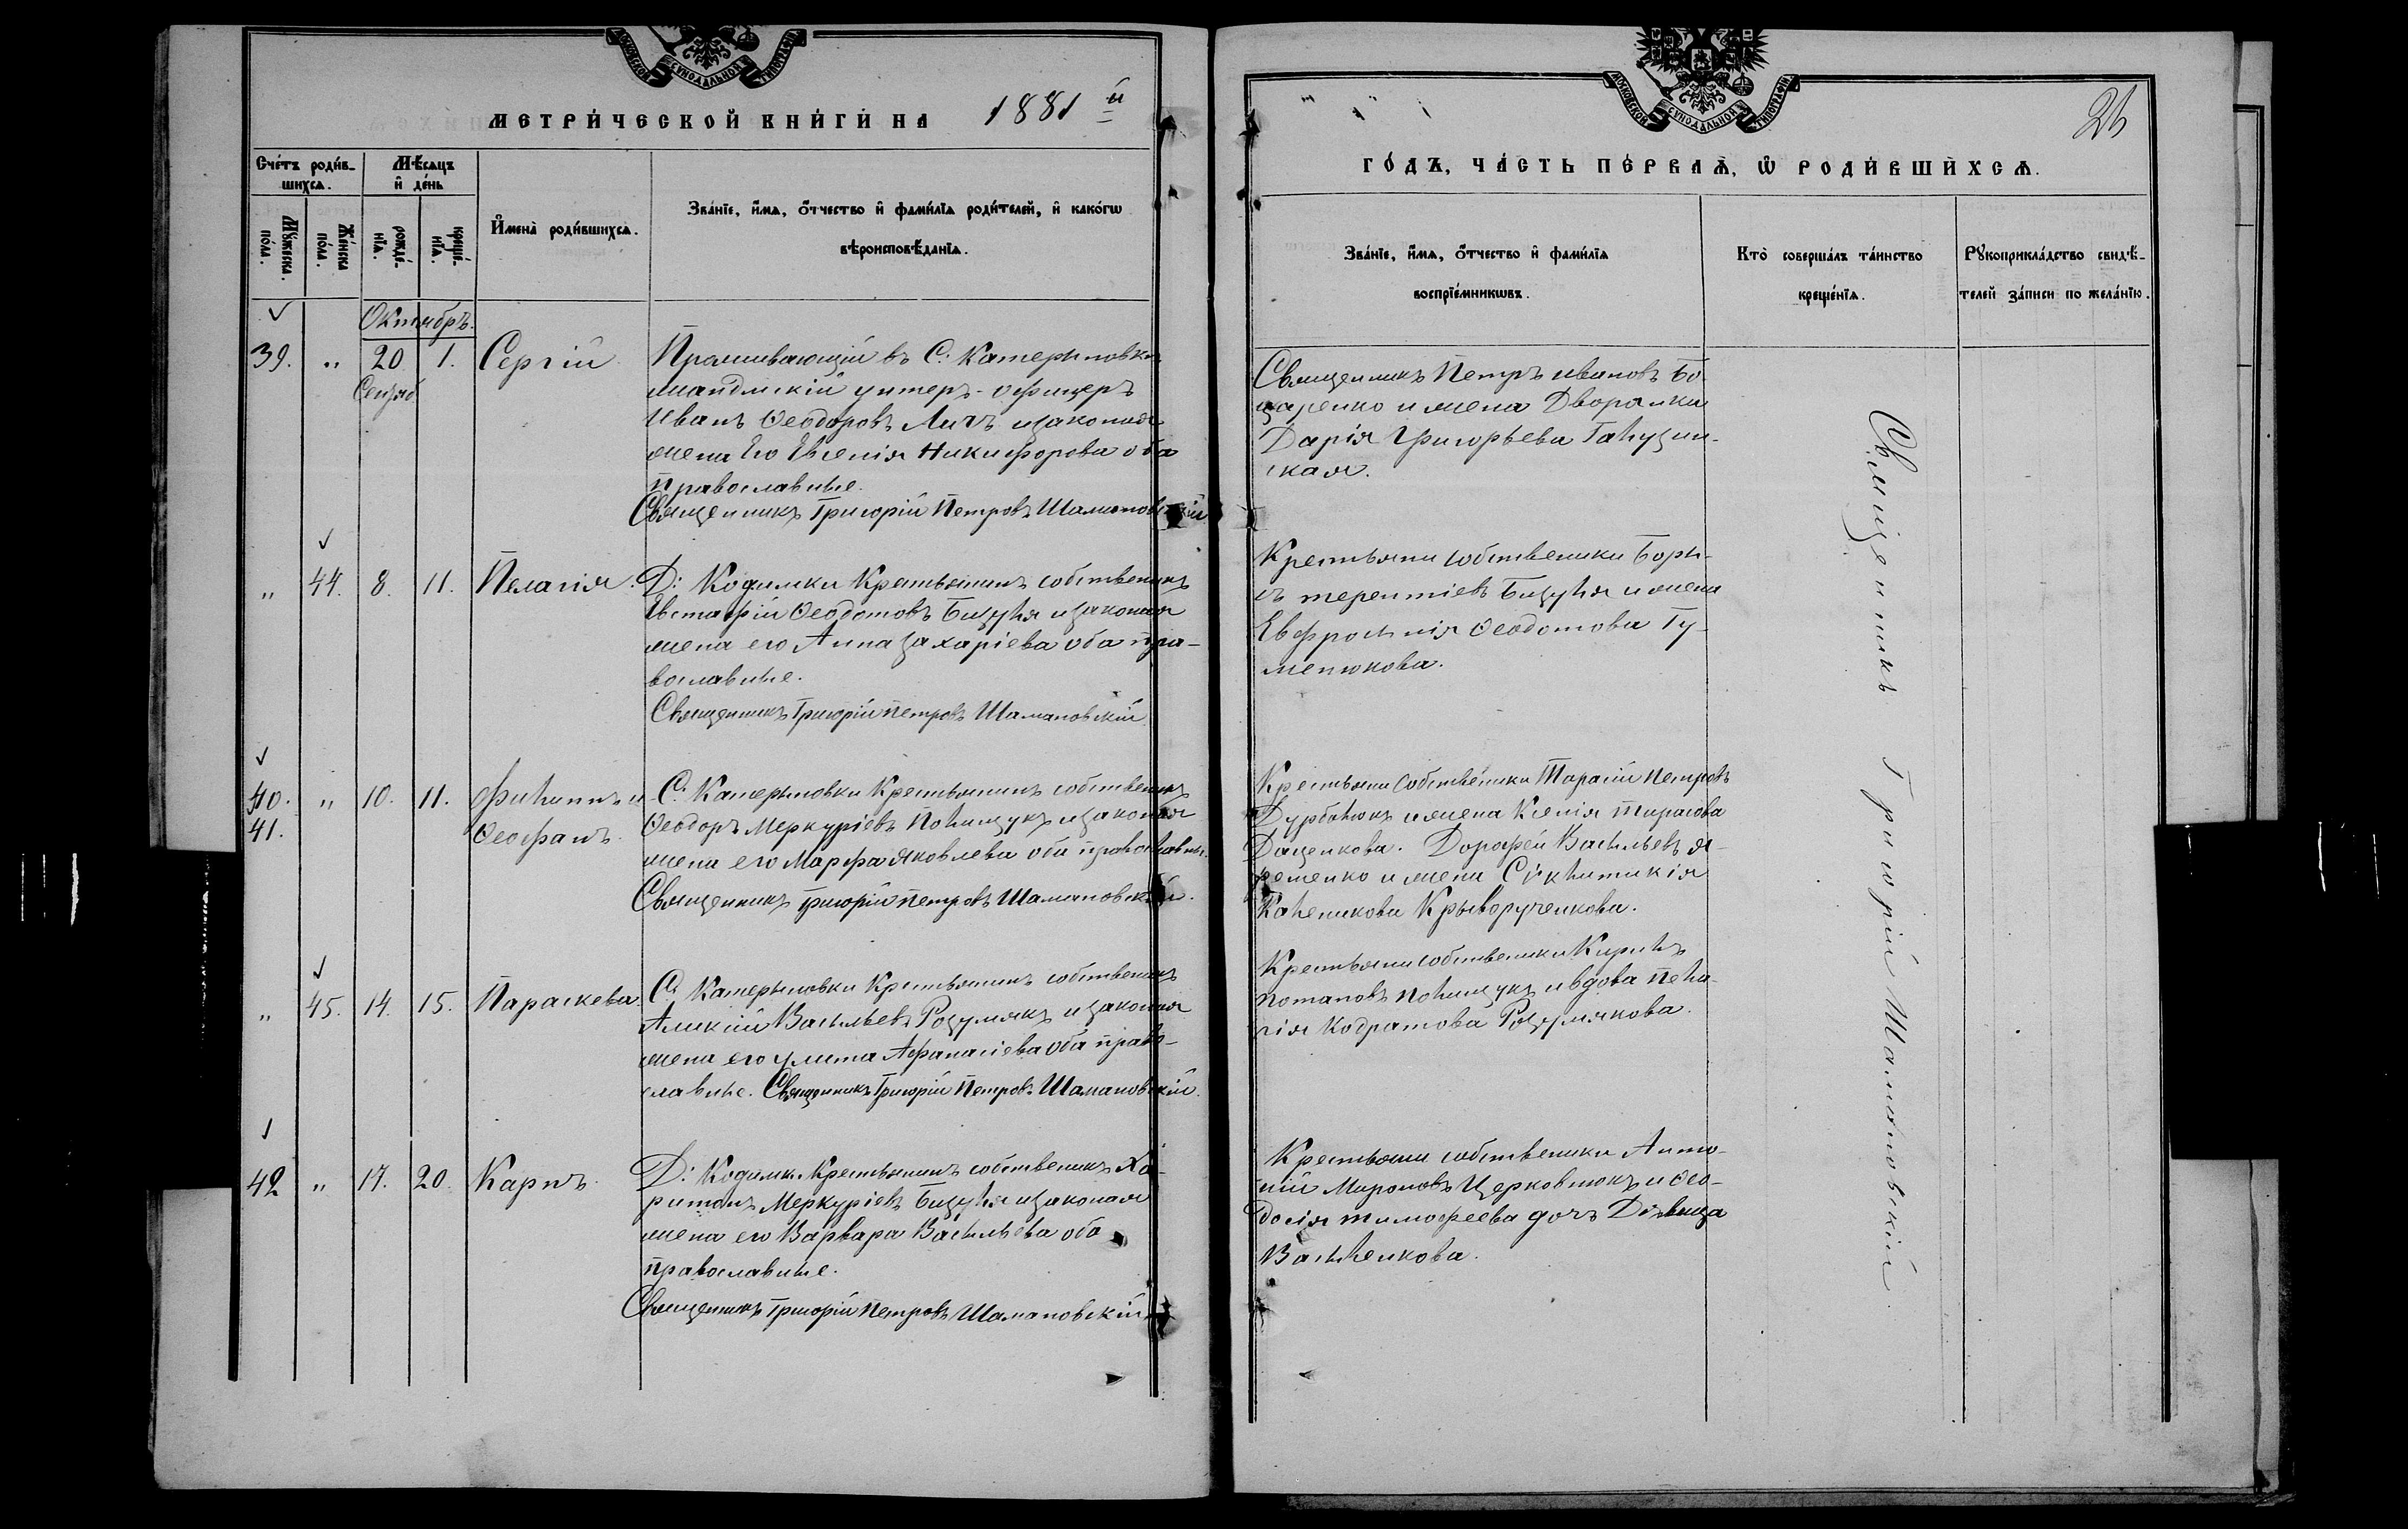 МОСКОВСКОЙ СѴНОДАЛЬНОЙ ТИПОГРАФІИ
МЕТРИ́ЧЕСКОЙ КНИ́ГИ НА 1881 й
Сче́тъ роди́в-
шихсѧ.
Мѣ́сѧцъ
и҆ де́нь
Мꙋ́жеска по́ла.
Же́нска по́ла.
рожде́-
нїѧ.
креще́-
нїѧ.
И҆мена̀ роди́вшихсѧ.
Зва́нїе, и҆́мѧ, ѻ҆́тчество и҆ фами́лїѧ роди́телей, и҆ како́гѡ
вѣроисповѣ́данїѧ.
Октябрь.
39. " 20 1. Сергій
Сентяб
Проживающій въ С. Катериновки
унтеръ-офицеръ
Иванъ Ѳеодоровъ изаконная
жена Его Евгенія Никифорова оба
православные.
Священникъ Григорій Петровъ Шамановскій
" 44. 8. 11. Пелагія.
Д: Кодимки Крестьянинъ собственикъ
Евстафій Ѳеодотовъ Бицуля изаконная
жена его Анна Захаріева оба пра-
вославные.
Священникъ Григорій Петровъ Шамановскій
40. " 10. 11. Филиппъ и
41. Ѳеофанъ.
С. Катериновки Крестьянинъ собственикъ
Ѳеодоръ Меркуріевъ Полищукъ изаконная
жена его Марфа Яковлева оба православны.
Священникъ Григорій Петровъ Шамановскій.
" 45. 14. 15. Параскева
С. Катериновки Крестьянинъ собственикъ
Алексій Васильевъ Розумякъ изаконная
жена его Улита Афанасіева оба право-
славные. Священникъ Григорій Петровъ Шамановскій.
42 " 17. 20. Карпъ.
Д: Кодимки Крестьянинъ собственикъ Ха-
ритонъ Меркуріевъ Бицуля изаконая
жена его Варвара Васильева оба
православные.
Священникъ Григорій Петровъ Шамановскій
МОСКОВСКОЙ СѴНОДАЛЬНОЙ ТИПОГРАФІИ
26
ГО́ДЪ, ЧА́СТЬ ПЕ́РВАѦ, Ѡ҆ РОДИ́ВШИХСѦ.
Зва́нїе, и҆́мѧ, ѻ҆́тчество и҆ фами́лїѧ
воспрїе́мникѡвъ.
Кто̀ соверша́лъ та́инство
креще́нїѧ.
Рꙋкоприкла́дство свидѣ́-
телей за́писи по жела́нїю.
Священникъ Петръ ивановъ Бо-
царенко и жена Дворянка
Дарія Григорьева
ская.
Крестьяни собственики Бори-
съ терентіевъ Бицуля и жена
Евфросинія Ѳеодотова Гу-
менюкова.
Крестьяни собственики Тарасій Петровъ
и жена Ксенія тарасова
Даценкова. Дорофей Васильевъ Я-
ременко и жена Сѵнклитикія
Каленикова Крыворученкова.
Крестьяни собственики Кирилъ
потаповъ полищукъ и вдова пела-
гія Кодратова Розумякова.
Крестьяни собственики Анто-
ній Мироновъ Церковнюкъ и Ѳео-
досія тимофеева дочь Дѣвица
Василенкова.
Священникъ Григорій Шамановскій.